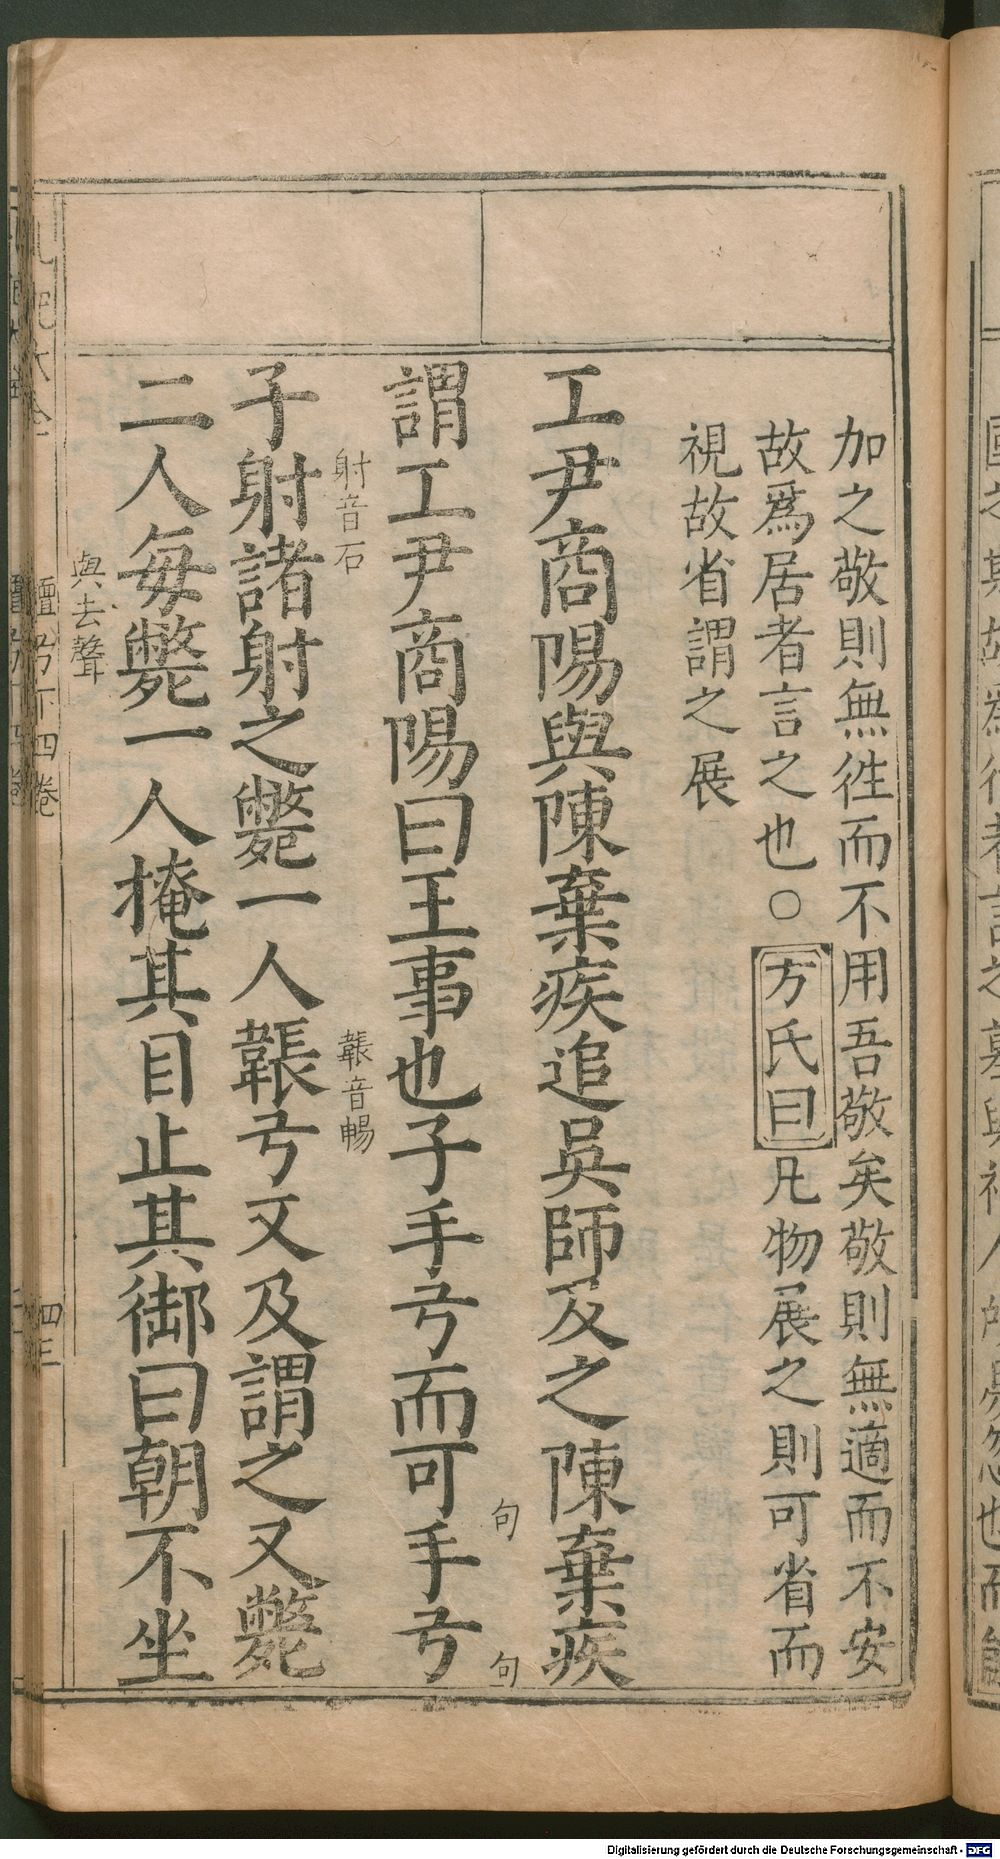 加之敬則無徃而不用吾敬矣敬則無適而不安
故爲居者言之也○方氏曰凡物展之則可省而
視故省謂之展
工尹商陽與陳棄疾追吳師及之陳棄疾
句 句
謂工尹商陽曰王事也子手弓而可手弓
射音石 韔音暢
子射諸射之斃一人韔弓又及謂之又斃
二人每斃一人掩其目止其御曰朝不坐
與去聲
檀弓下四卷 四三
Digitalisierung gefördert durch die Deutsche Forschungsgemeinschaft - DFG